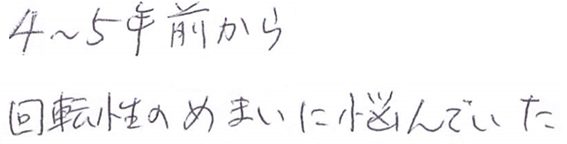 4〜5年前から
回転性のめまいに悩んでいた